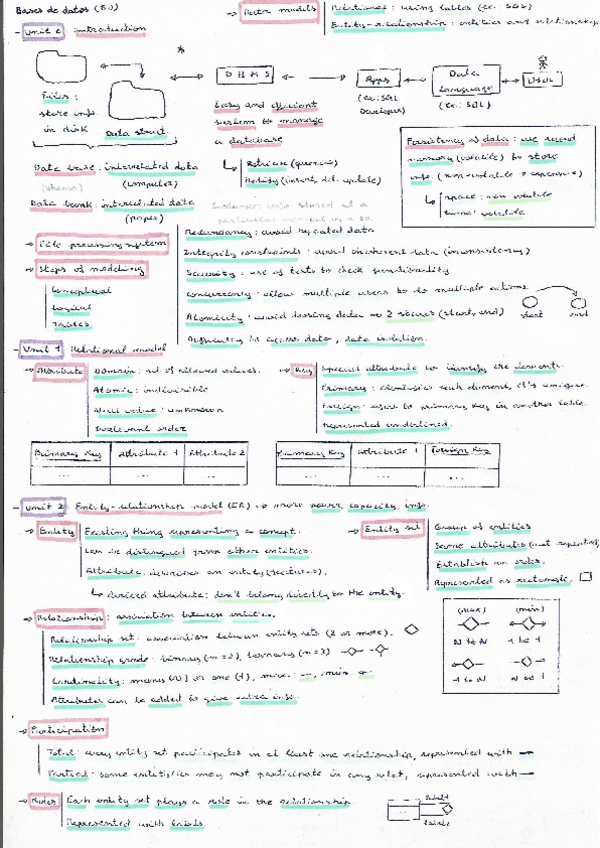 Bases de datos (BD)
→ Data models | Relational: using tables (ex.: SQL)
Entity-relationship: entities and relationships
- Unit 0 Introduction
*
Files:
store info.
in disk
Data struct.
DBMS
Easy and efficient
system to manage
a database
↳ Retrieve (queries)
Modify (insert, del. update)
Apps
(ex.: SQL
Developer)
Data
Language
(ex.: SQL)
User
Persistency of data: we need
memory (volatile) to store
info. (non-volatile → expensive)
↳ space: non volatile
time: volatile
Data base: interrelated data
(schema) (computer)
Data bank: interrelated data
(paper)
Instance: info stored at a
particular moment in a DB
→ File processing system
→ Steps of modeling
Conceptual
Logical
Tables
Redundancy: avoid repeated data
Integrity constraints: avoid incoherent data (inconsistency)
Security: use of tests to check functionality
Concurrency: allow multiple users to do multiple actions.
Atomicity: avoid losing data → 2 states (start, end)
Difficulty to access data, data isolation.
start end
- Unit 1 Relational model
→ Attribute | Domain: set of allowed values.
Atomic: indivisible
Null value: unknown
Irrelevant order
→ Key | Special attribute to identify the elements.
Primary: identifies each element, it's unique.
Foreign: refers to primary key in another table.
Represented underlined.
Primary Key | Attribute 1 | Attribute 2
... | ... | ...
Primary Key | Attribute 1 | Foreign Key
... | ... | ...
- Unit 2 Entity-relationship model (ER) → more power, capacity, info.
→ Entity | Existing thing representing a concept.
Can be distinguished from other entities.
Attribute: describes an entity (features).
↳ derived attribute: don't belong directly to the entity.
→ Entity set | Group of entities
Same attributes (not repeated)
Establish an order.
Represented as rectangle.
→ Relationship: association between entities.
Relationship set: association between entity sets (2 or more).
Relationship grade: binary (n=2), ternary (n=3)
Cardinality: many (N) or one (1), max: min
Attributes can be added to give extra info.
(max) (min)
N to N 1 to 1
1 to N N to 1
→ Participation
Total: every entity set participates in at least one relationship, represented with
Partial: some entities may not participate in any relat, represented with
→ Roles | Each entity set plays a role in the relationship.
Represented with labels.